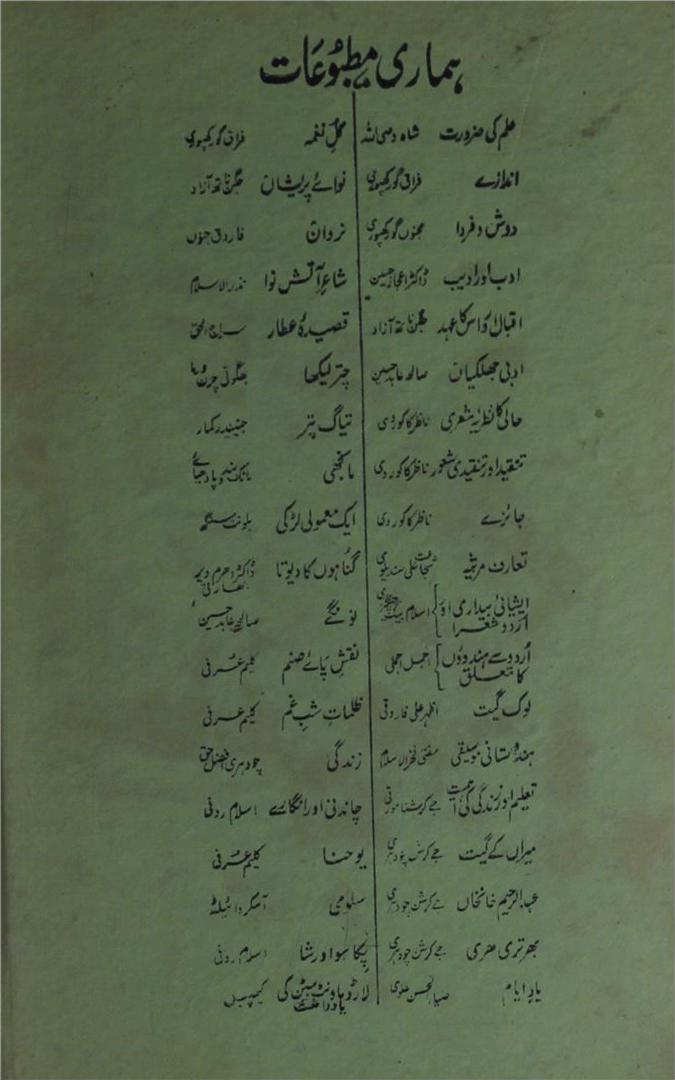 ہماری مطبُوعَات
علم کی ضرورت شاہ وصی اللہ
اندازے فراق گورکھپوری
دوش و فردا مجنوں گورکھپوری
ادب اور ادیب ڈاکٹر اعجاز حسین
اقبال اور اس کا عہد جگن ناتھ آزاد
ادبی جھلکیاں صالحہ عابد حسین
حالی کا نظریۂ شعری ناظر کاکوروی
تنقید اور تنقیدی شعور ناظر کاکوروی
جائزے ناظر کاکوروی
تعارف مرثیہ شجاعت علی سندیلوی
ایشیائی بیداری اور اسلام بیگ
اردو شعرا
اُردو سے ہندوؤں اجمل اجملی
کا تعلق
لوک گیت اظہر علی فاروقی
ہندوستانی موسیقی مفتی فخر الاسلام
تعلیم اور زندگی کی اہمیت جے کرشنا مورتی
میراں کے گیت جے کرشن چودہری
عبدالرحیم خانخاں جے کرشن چودہری
بھرتری ہری جے کرشن چودہری
یادِ ایام ضیاء الحسن علوی
گلِ نغمہ فراق گورکھپوری
نوائے پریشاں جگن ناتھ آزاد
نروان فاروق جنوں
شاعرِ آتش نوا نذر الاسلام
قصیدۂ عطار سراج الحق
چتر لیکھا بھگوتی چرن ورما
تیاگ پتر جنیندر کمار
مانجھی
ایک معمولی لڑکی بلونت سنگھ
گناہوں کا دیوتا ڈاکٹر دھرم ویر
بھارتی
نونگے صالحہ عابد حسین
نقشِ پائے صنم کلیم عرفی
ظلماتِ شبِ غم کلیم عرفی
زندگی چودہری افضل حق
چاندنی اور انگارے اسلام ردفی
یوحنا کلیم عرفی
سلومی آسکر وائیلڈ
پکاسو اور شا اسلام ردفی
لارڈ ماونٹ بیٹن کی کیمپبل
یادداشت